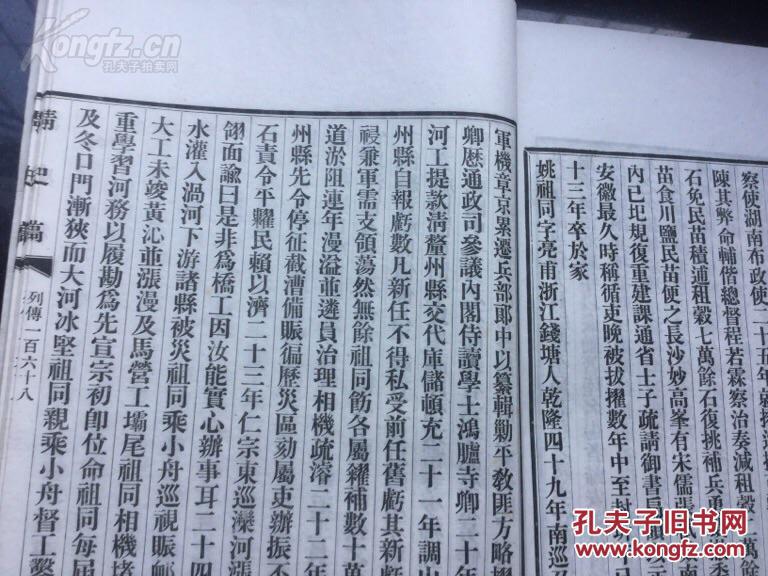 察使湖南布政使二十五年
陳其弊命輔偕總督程若霖察治奏減租穀
石免民苗積逋租穀七萬餘石復挑補兵勇
苗食川鹽民苗便之長沙妙高峯有宋儒張
內已圯規復重建課通省士子疏請御書
安徽最久時稱循吏晚被拔擢數年中至封
十三年卒於家
姚祖同字亮甫浙江錢塘人乾隆四十九年南巡召
軍機章京累遷兵部郎中以纂輯勦平教匪方略擢
卿歷通政司參議內閣侍讀學士鴻臚寺卿二十年
河工提款淸釐州縣交代庫儲頓充二十一年調山
州縣自報虧數凡新任不得私受前任舊虧其新虧
祲兼軍需支領蕩然無餘祖同飭各屬糴補數十萬
道淤阻連年漫溢並遴員治理相機疏濬二十二年
州縣先令停征截漕備賑徧歷災區劾屬吏辦賑不
石責令平糶民賴以濟二十三年仁宗東巡灤河漲
翎面諭曰是非爲橋工因汝能實心辦事耳二十四
水灌入渦河下游諸縣被災祖同乘小舟巡視賑
大工未竣黃沁並漲漫及馬營工壩尾祖同相機堵
重學習河務以履勘爲先宣宗初卽位命祖同每屆
及冬口門漸狹而大河冰堅祖同親乘小舟督工鑿
淸史稿
列傳一百六十八
Kongfz.cn
孔夫子拍卖网
孔夫子旧书网
KONGFZ.COM